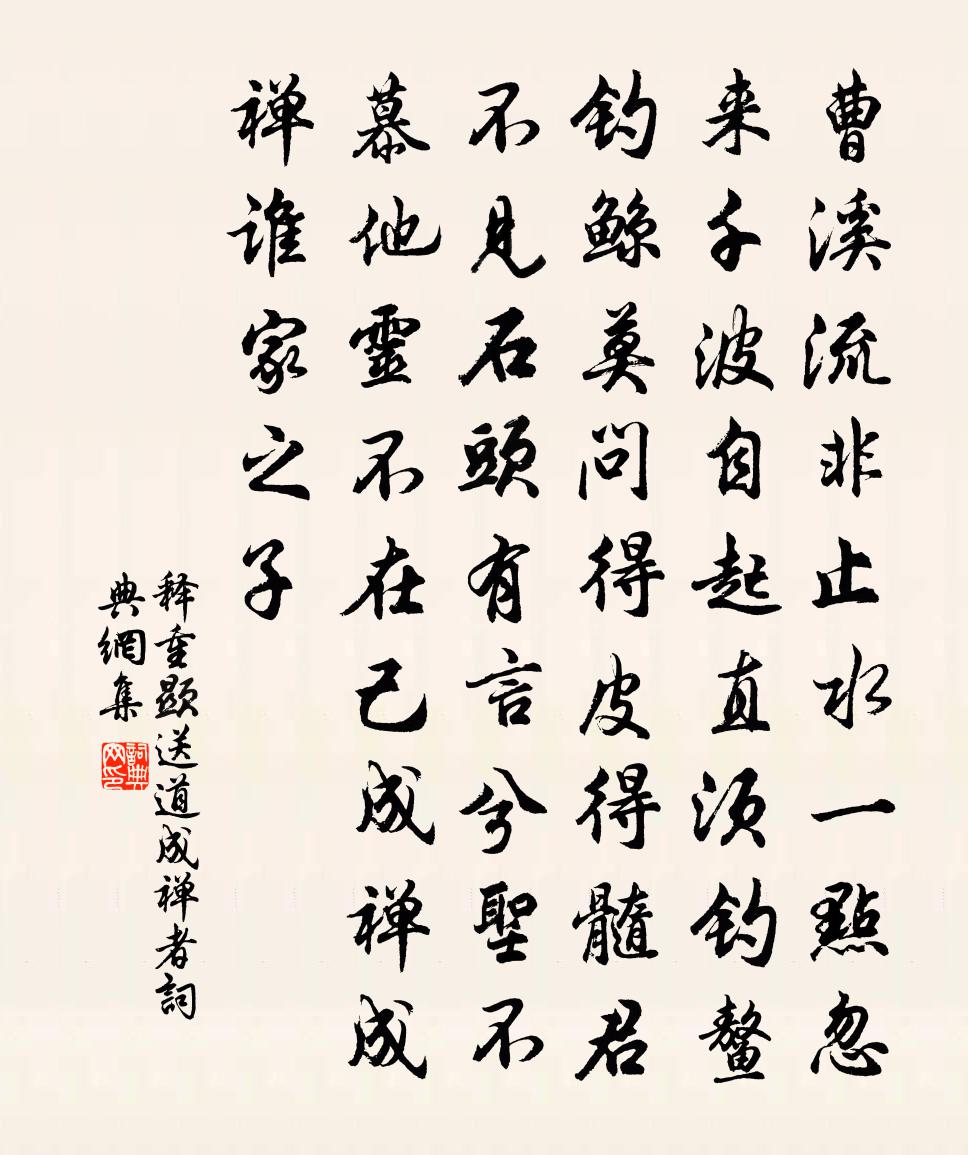 曹溪流非止水一點忽
来千波自起直須钓鳌
钓鲸莫问得皮得髓君
不見石頭有言兮聖不
慕他靈不在己成禅成
禅谁家之子
释重顯送道成禅者詞
典網集
詞典网印